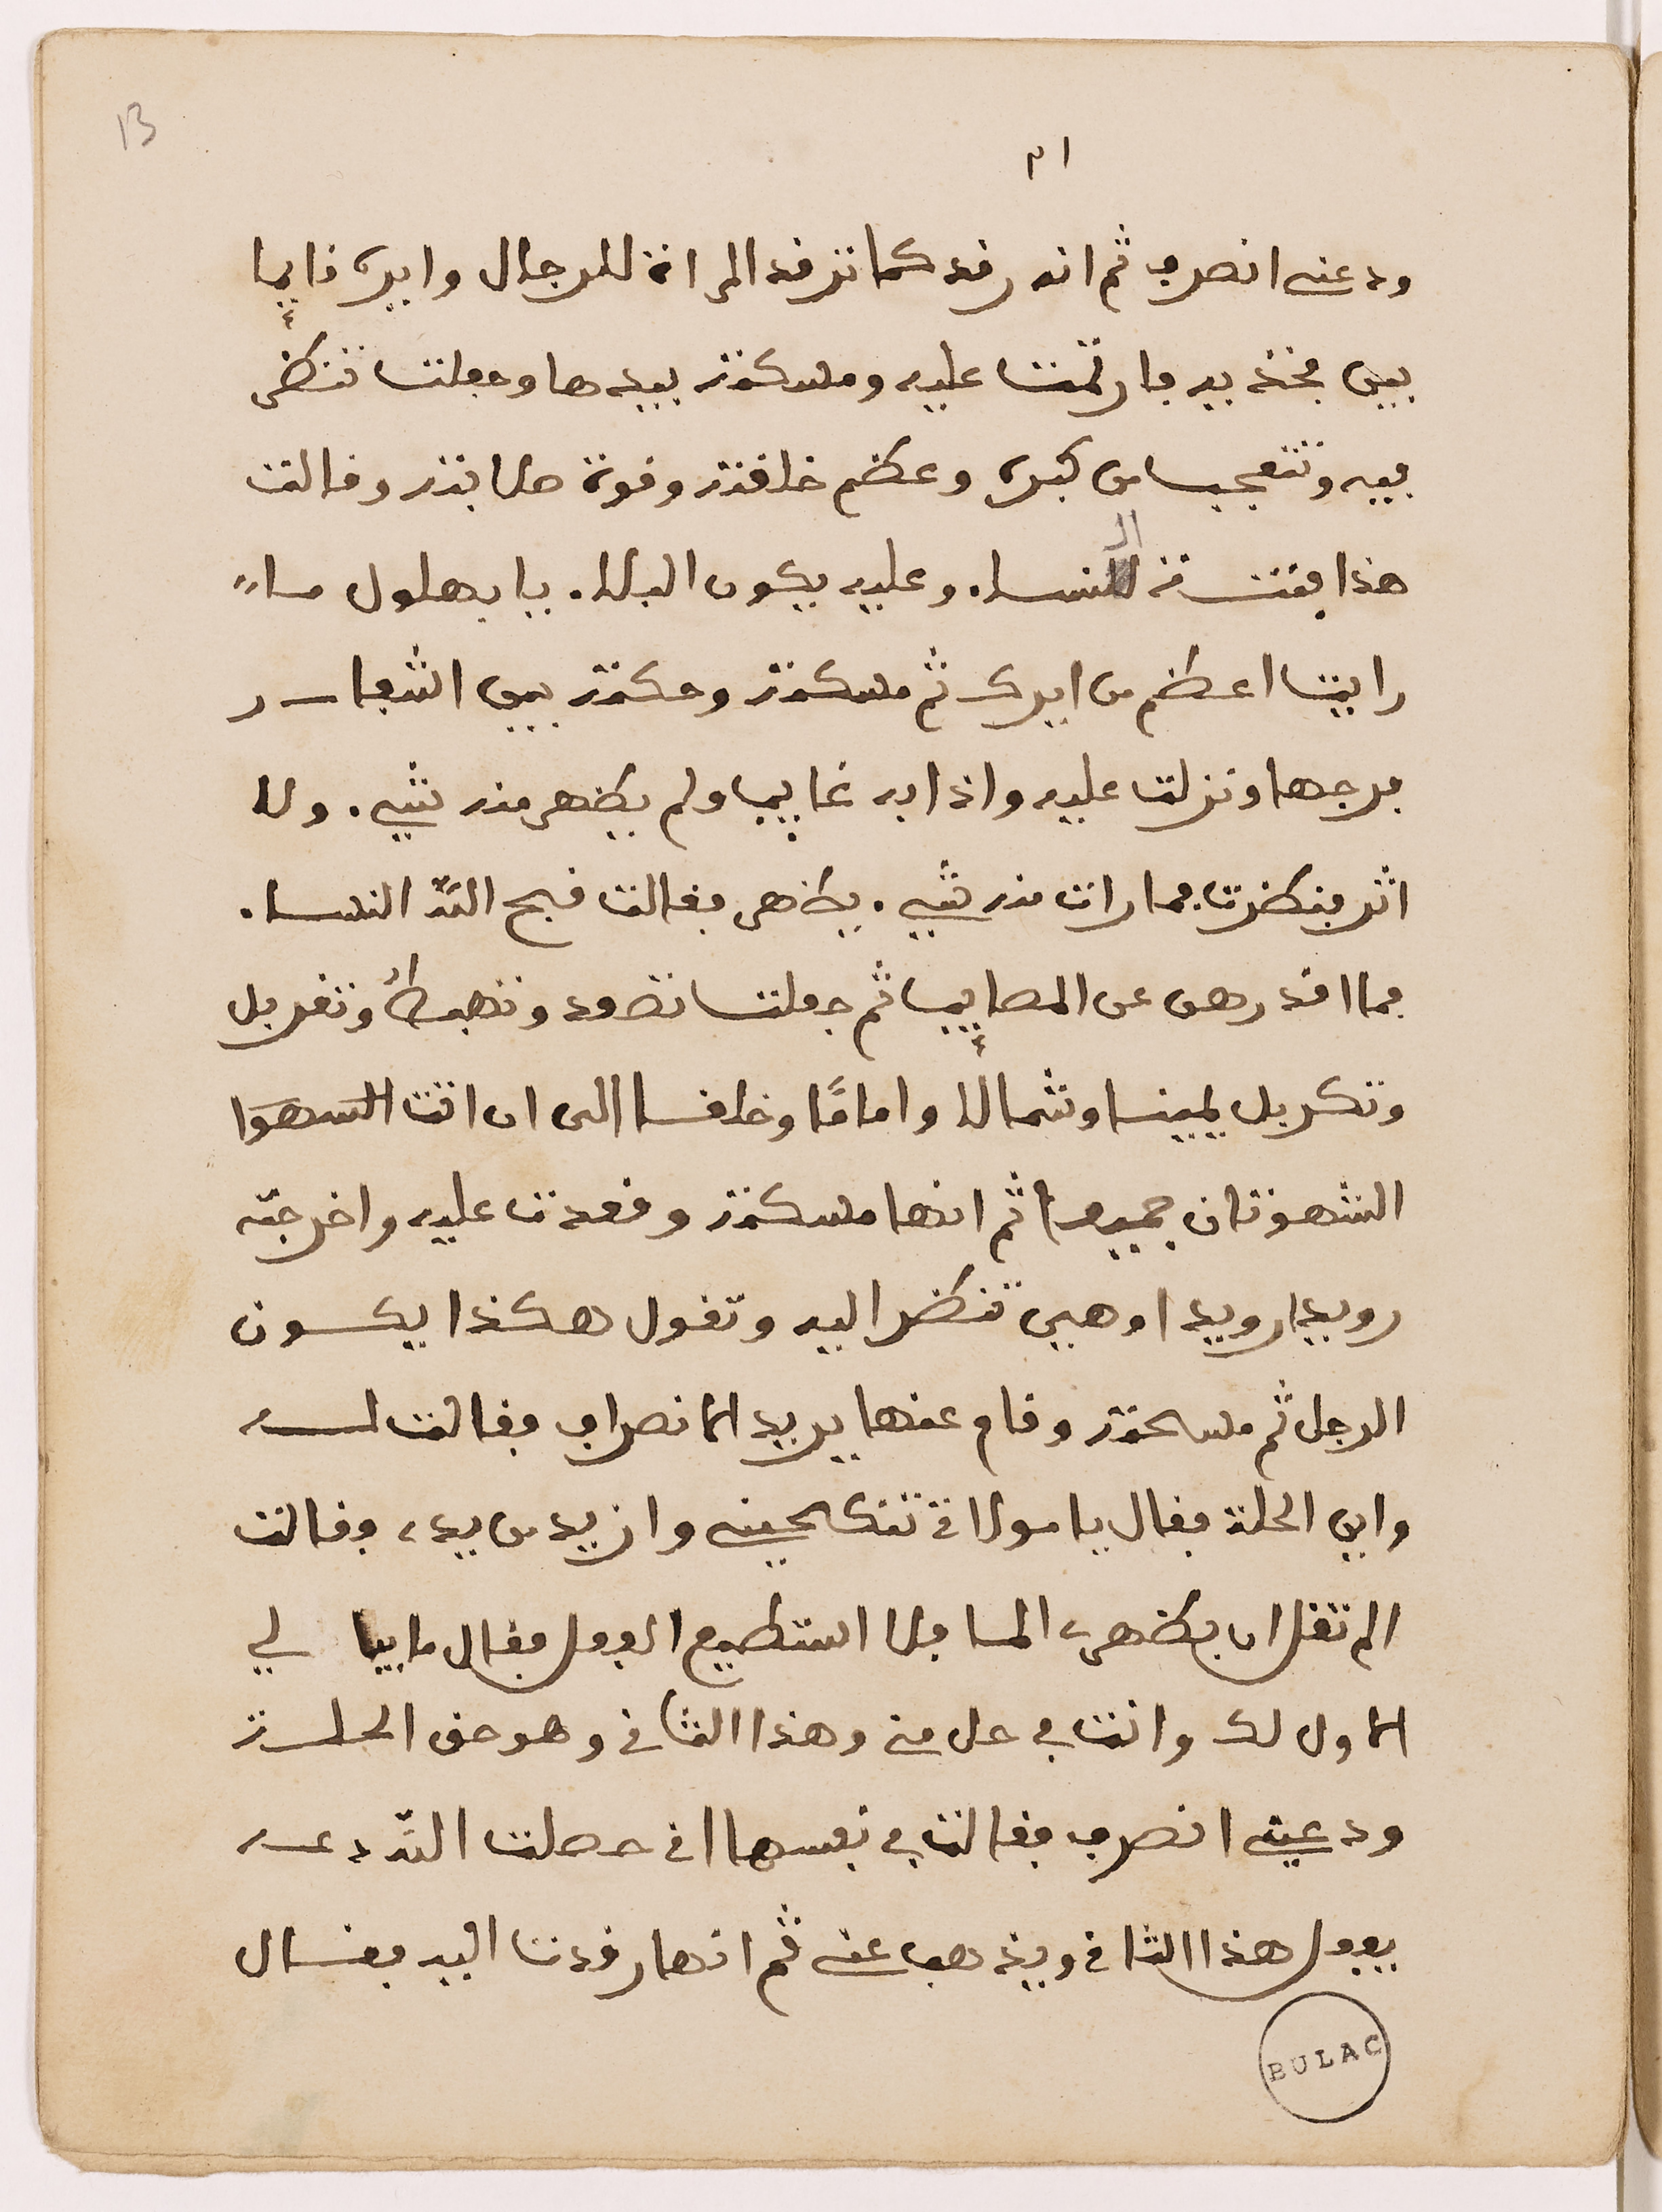 13
ودعنى انصرف ثم انه رقد كما ترقد المراة للرجال وايره قايما
بين فخذيه فارتمت عليه ومسكته بيدها وجعلت تنظر
فيه وتتعجب من كبره وعظم خلقته وقوة صلابته وقالت
هذا فتنة النساء وعليه يكون البلاء يا بهلول ما
رايت اعظم من ايرك ثم مسكته وحكته بين اشفار
فرجها ونزلت عليه واذا به غايب ولم يظهر منه شيء ولا
اثر فنظرت فما رات منه شيء يظهر فقالت قبح الله النساء
فما اقدرهن عن المصايب ثم جعلت تصعد وتهبط وتغربل
وتكربل يمينا وشمالا واماما وخلفا الى ان اتت الشهوا
الشهوتان جميعا ثم انها مسكته وقعدت عليه واخرجته
رويدا رويدا وهي تنظر اليه وتقول هكذا يكون
الرجل ثم مسحته وقام عنها يريد الانصراف فقالت له
واين الحلة فقال يا مولاتى تنكحينى وازيد من يدى فقالت
الم تقل ان بظهرى الما فلا استطيع الفعل فقال ما بيا لي
الاول لك وانت في حل منى وهذا الثانى وهو حق الحلة
ودعينى انصرف فقالت في نفسها انى حصلت الله دعه
يفعل هذا الثانى ويذهب عنى ثم انها رقدت اليه فقال
BULAC